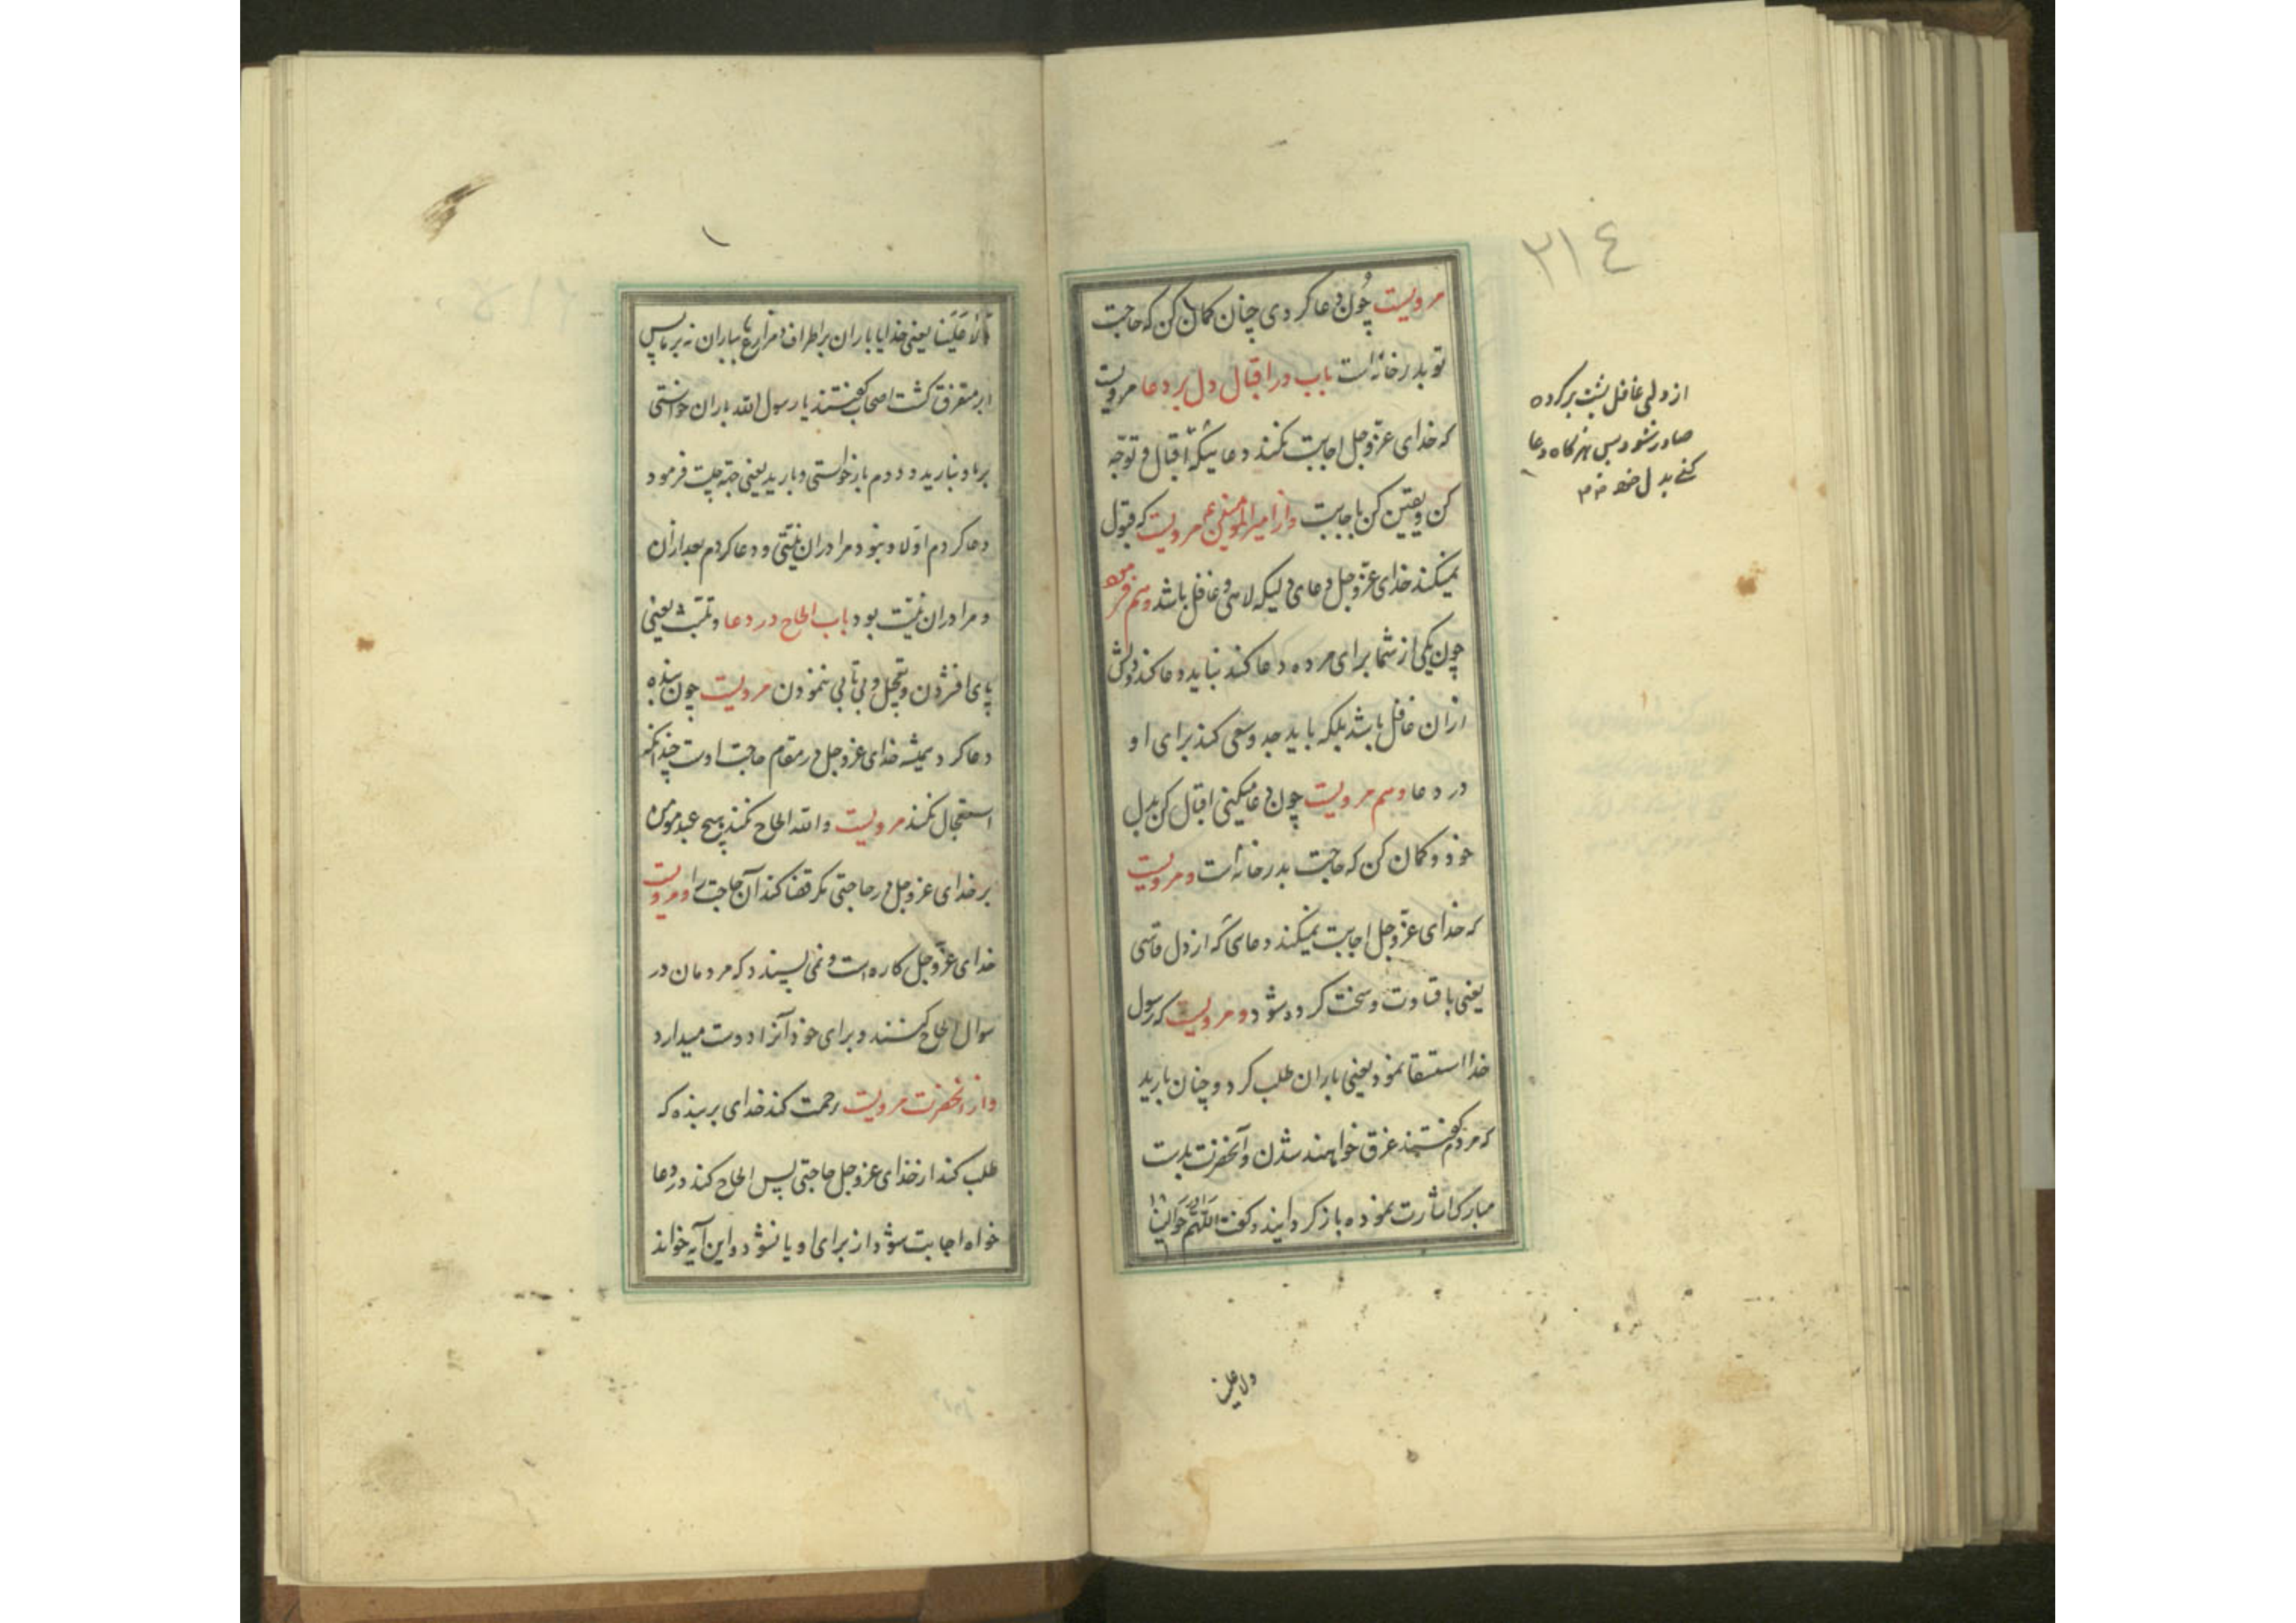 ۲۱٤
مرویست چون دعا کردی چنان کمان کن که حاجت
تو بدر خانه است باب در اقبال دل بر دعا مرویست
که خدای عزّ و جل اجابت نکند دعائیکه اقبال و توجّه
کن و یقین کن باجابت و از امیرالمومنین ع مرویست که قبول
نمیکند خدای عزّ و جل دعای دلیکه لاهی و غافل باشد و هم فرموده
چون یکی از شما برای مرده دعا کند نباید دعا کند و دلش
از ان غافل باشد بلکه باید جد و سعی کند برای او
در دعا و هم مرویست چون دعا میکنی اقبال کن بدل
خود و کمان کن که حاجت بدر خانه است و مرویست
که خدای عزّ و جل اجابت نمیکند دعائی که از دل قاسی
یعنی با قساوت و سخت کرده شود و مرویست که رسول
خدا استسقا نمود یعنی باران طلب کرد و چنان بارید
که مردم کفتند غرق خواهند شدن و آنحضرت بدست
مبارک اشارت نموده باز کردانید و کفت اللهم حوالینا
ولا علینا
از دلی غافل پشت بر کرده
صادر شود پس هرکاه دعا
کنی بدل خود
۱
ولا علینا یعنی خدایا باران بر اطراف و مزارع بباران نه بر ما پس
ابر متفرق کشت اصحاب کفتند یا رسول الله باران خواستی
بر ما و نبارید و دوم باز خواستی و بارید یعنی جهة چیست فرمود
دعا کردم اولا و نبود مرا در ان نیّتی و دعا کردم بعد از ان
و مرا در ان نیّت بود باب الحاح در دعا و تلبّث یعنی
پای افشردن و تعجیل و بی تابی ننمودن مرویست چون بنده
دعا کرد همیشه خدای عز و جل در مقام حاجت اوست چندانکه
استعجال نکند مرویست و الله الحاح نکند هیچ عبد مومن
بر خدای عز و جل در حاجتی مکر قضا کند آن حاجت را و مرویست
خدای عزّ و جل کاره است و نمی پسندد که مردمان در
سوال الحاح کنند و برای خود آنرا دوست میدارد
و از آنحضرت مرویست رحمت کند خدای بر بنده که
طلب کند از خدای عز و جل حاجتی پس الحاح کند در دعا
خواه اجابت شود از برای او یا نشود و این آیه خواند